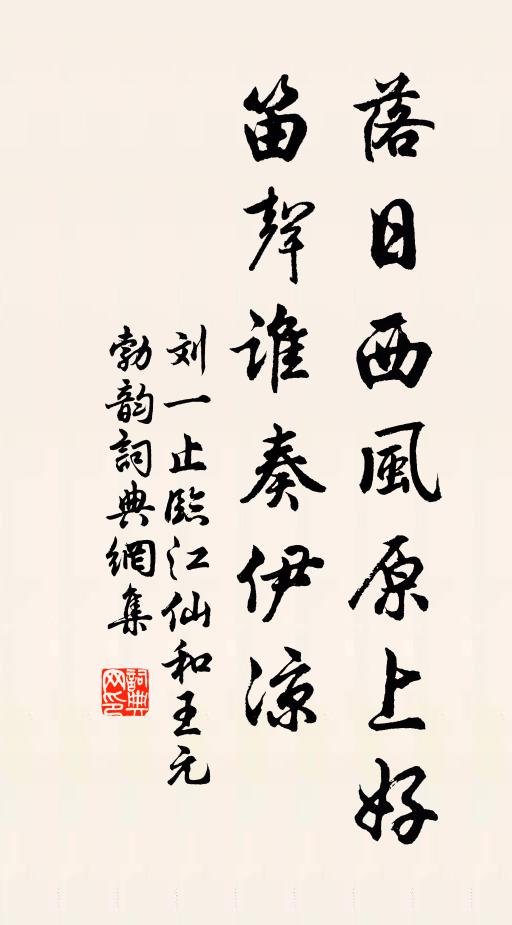 落日西風原上好
笛聲誰奏伊涼
刘一止臨江仙和王元
勃韵詞典網集
詞典
网印